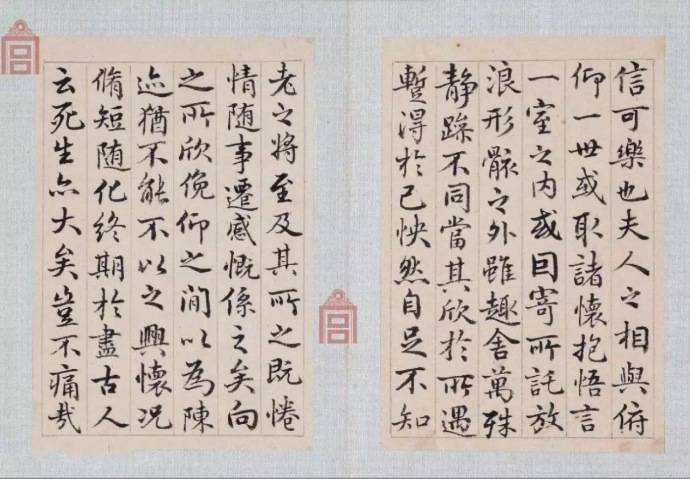 信可樂也夫人之相與俯
仰一世或取諸懷抱悟言
一室之内或因寄所託放
浪形骸之外雖趣舍萬殊
靜躁不同當其欣於所遇
蹔得於己怏然自足不知
老之將至及其所之既惓
情随事遷感慨係之矣向
之所欣俛仰之間以為陳
迹猶不能不以之興懷況
脩短随化終期於盡古人
云死生亦大矣豈不痛哉